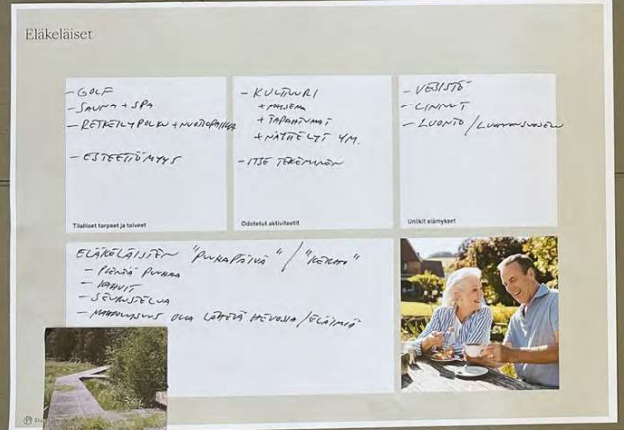 Eläkeläiset
- GOLF
- SAUNA + SPA
- RETKEILYPOLKU + NUOTIOPAIKKA
- ESTEETTÖMYYS
Tilalliset tarpeet ja toiveet
- KULTTUURI
+ MUSEMA
+ TAPAHTUMAT
+ NÄYTTELYT YM.
- ITSE TEKEMINEN
Odotetut aktiviteetit
- VESISTÖ
- LINNUT
- LUONTO /
Uniikit elämykset
ELÄKELÄISTEN "PUUHAPÄIVÄ" / "KERHO"
- PIENTÄ PUUHAA
- KAHVIT
- SEURUSTELUA
- MAHDOLLISUUS OLLA LÄHELLÄ HEVOSIA / ELÄIMIÄ